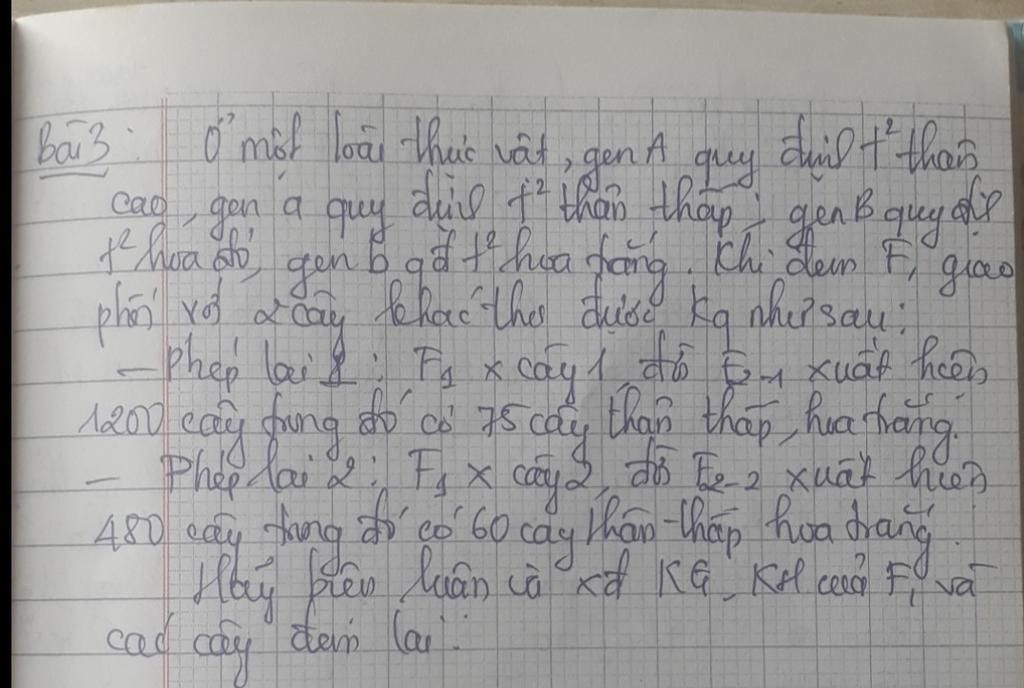 Bài 3: Ở một loài thực vật, gen A quy định t² thân
cao, gen a quy định t² thân thấp; gen B quy địn
t² hoa đỏ, gen b qđ t² hoa trắng. Khi đem F₁ giao
phấn với 2 cây khác thu được kq như sau:
- Phép lai 1: F₁ x cây 1, đời F₂₋₁ xuất hiện
1200 cây trong đó có 75 cây thân thấp, hoa trắng.
- Phép lai 2: F₁ x cây 2, đời F₂₋₂ xuất hiện
480 cây trong đó có 60 cây thân thấp hoa trắng.
Hãy biện luận và xđ KG, KH của F₁ và
các cây đem lai.